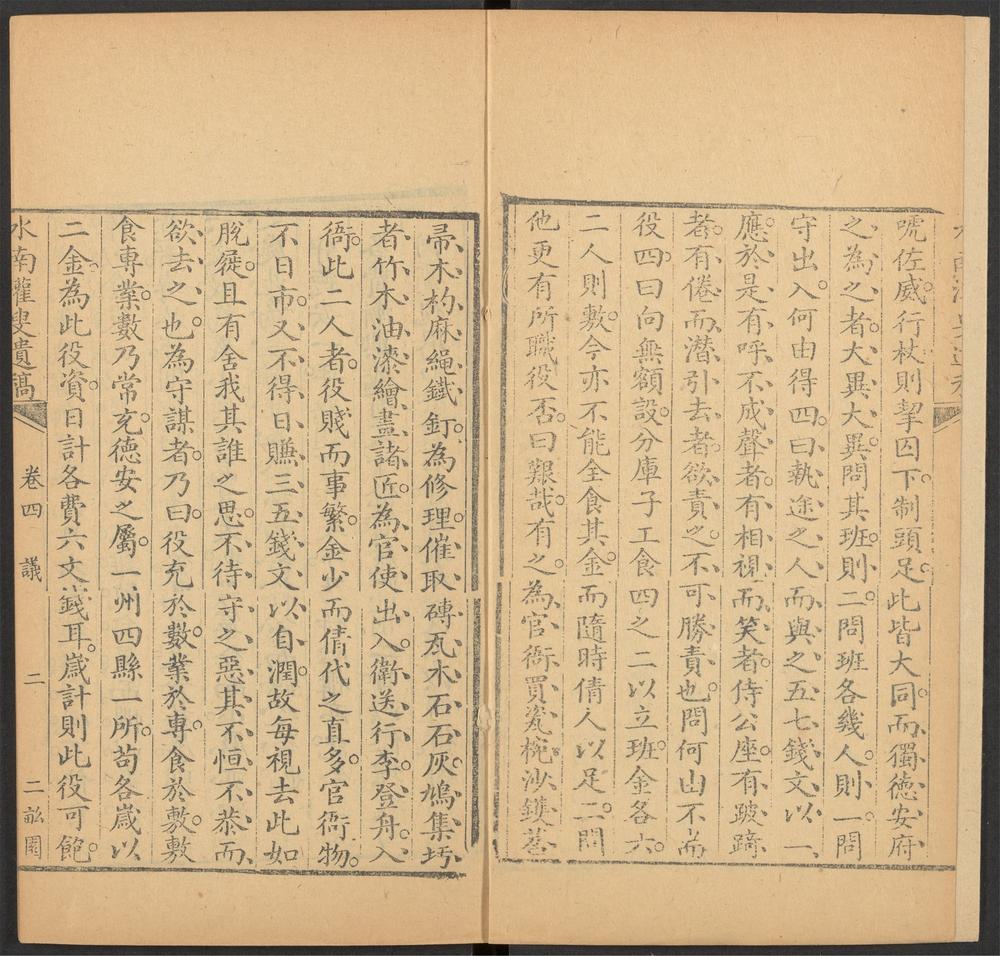 號佐威。行杖則挈囚下制頭足。此皆大同。而獨德安府
之為之者。大異大異。問其班則二。問班各幾人。則一。問
守出入何由得四。曰執途之人而與之五七錢文以一
應。於是有呼不成聲者。有相視而笑者。侍公座有跛踦
者。有倦而潛引去者。欲責之。不可勝責也。問何山不
役四。曰向無額設。分庫子工食四之二以立班。金各六。
二人則敷。今亦不能全食其金。而隨時倩人以足二。問
他更有所職役否。曰艱哉。有之。為官衙買瓷椀沙鍰
帚木杓麻繩鐵釘。為修理催取磚瓦木石石灰。鳩集圬
者竹木油漆繪畫諸匠。為官使出入。衛送行李。登舟入
衙。此二人者。役賤而事繁。金少而倩代之直多。官衙物。
不日市。又不得日賺三五錢文以自潤。故每視去此如
脫屣。且有舍我其誰之思。不待守之惡其不恒不恭而
欲去之也。為守謀者。乃曰役充於數。業於專。食於敷。敷
食專業。數乃常充。德安之屬。一州四縣一所。苟各歲以
二金為此役資。日計各費六文錢耳。歲計則此役可飽。
水南灌叟遺稿
卷四 議
二
二畝園